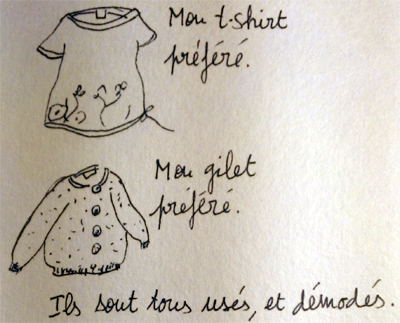 Mon t-shirt
préféré.
Mon gilet
préféré.
Ils sont tous usés, et démodés.